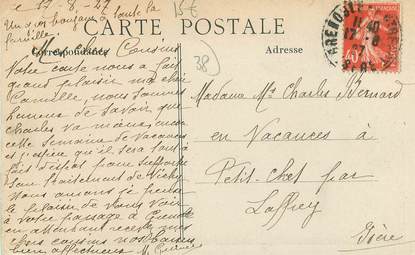 le 17-8-27
Un bonjour à toute la
famille
15€
CARTE POSTALE
Correspondance
Adresse
38
Mes Chers Cousins
Votre carte nous a fait
grand plaisir ma chère
Camille, nous sommes
heureux de savoir que
Charles va mieux, encore
cette semaine de Vacances
et j'espère qu'il sera tout à
fait d'effort pour supporter
son traitement de Vichy
Nous aurons je pense
le plaisir de vous voir
à votre passage à
en attendant recevez mes
chers cousins nos baisers
bien affectueux
Madame Me Charles Bernard
en Vacances à
Petit-Chet par
Laffrey
Isère